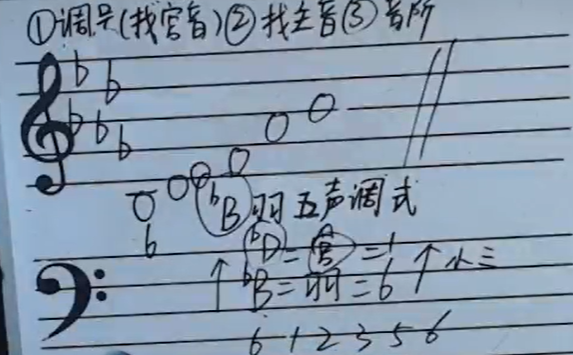 ①调号(找宫音)②找主音③音阶
♭B羽五声调式
6
♭D=宫=1
♭B=羽=6 ↑小三
6 1 2 3 5 6